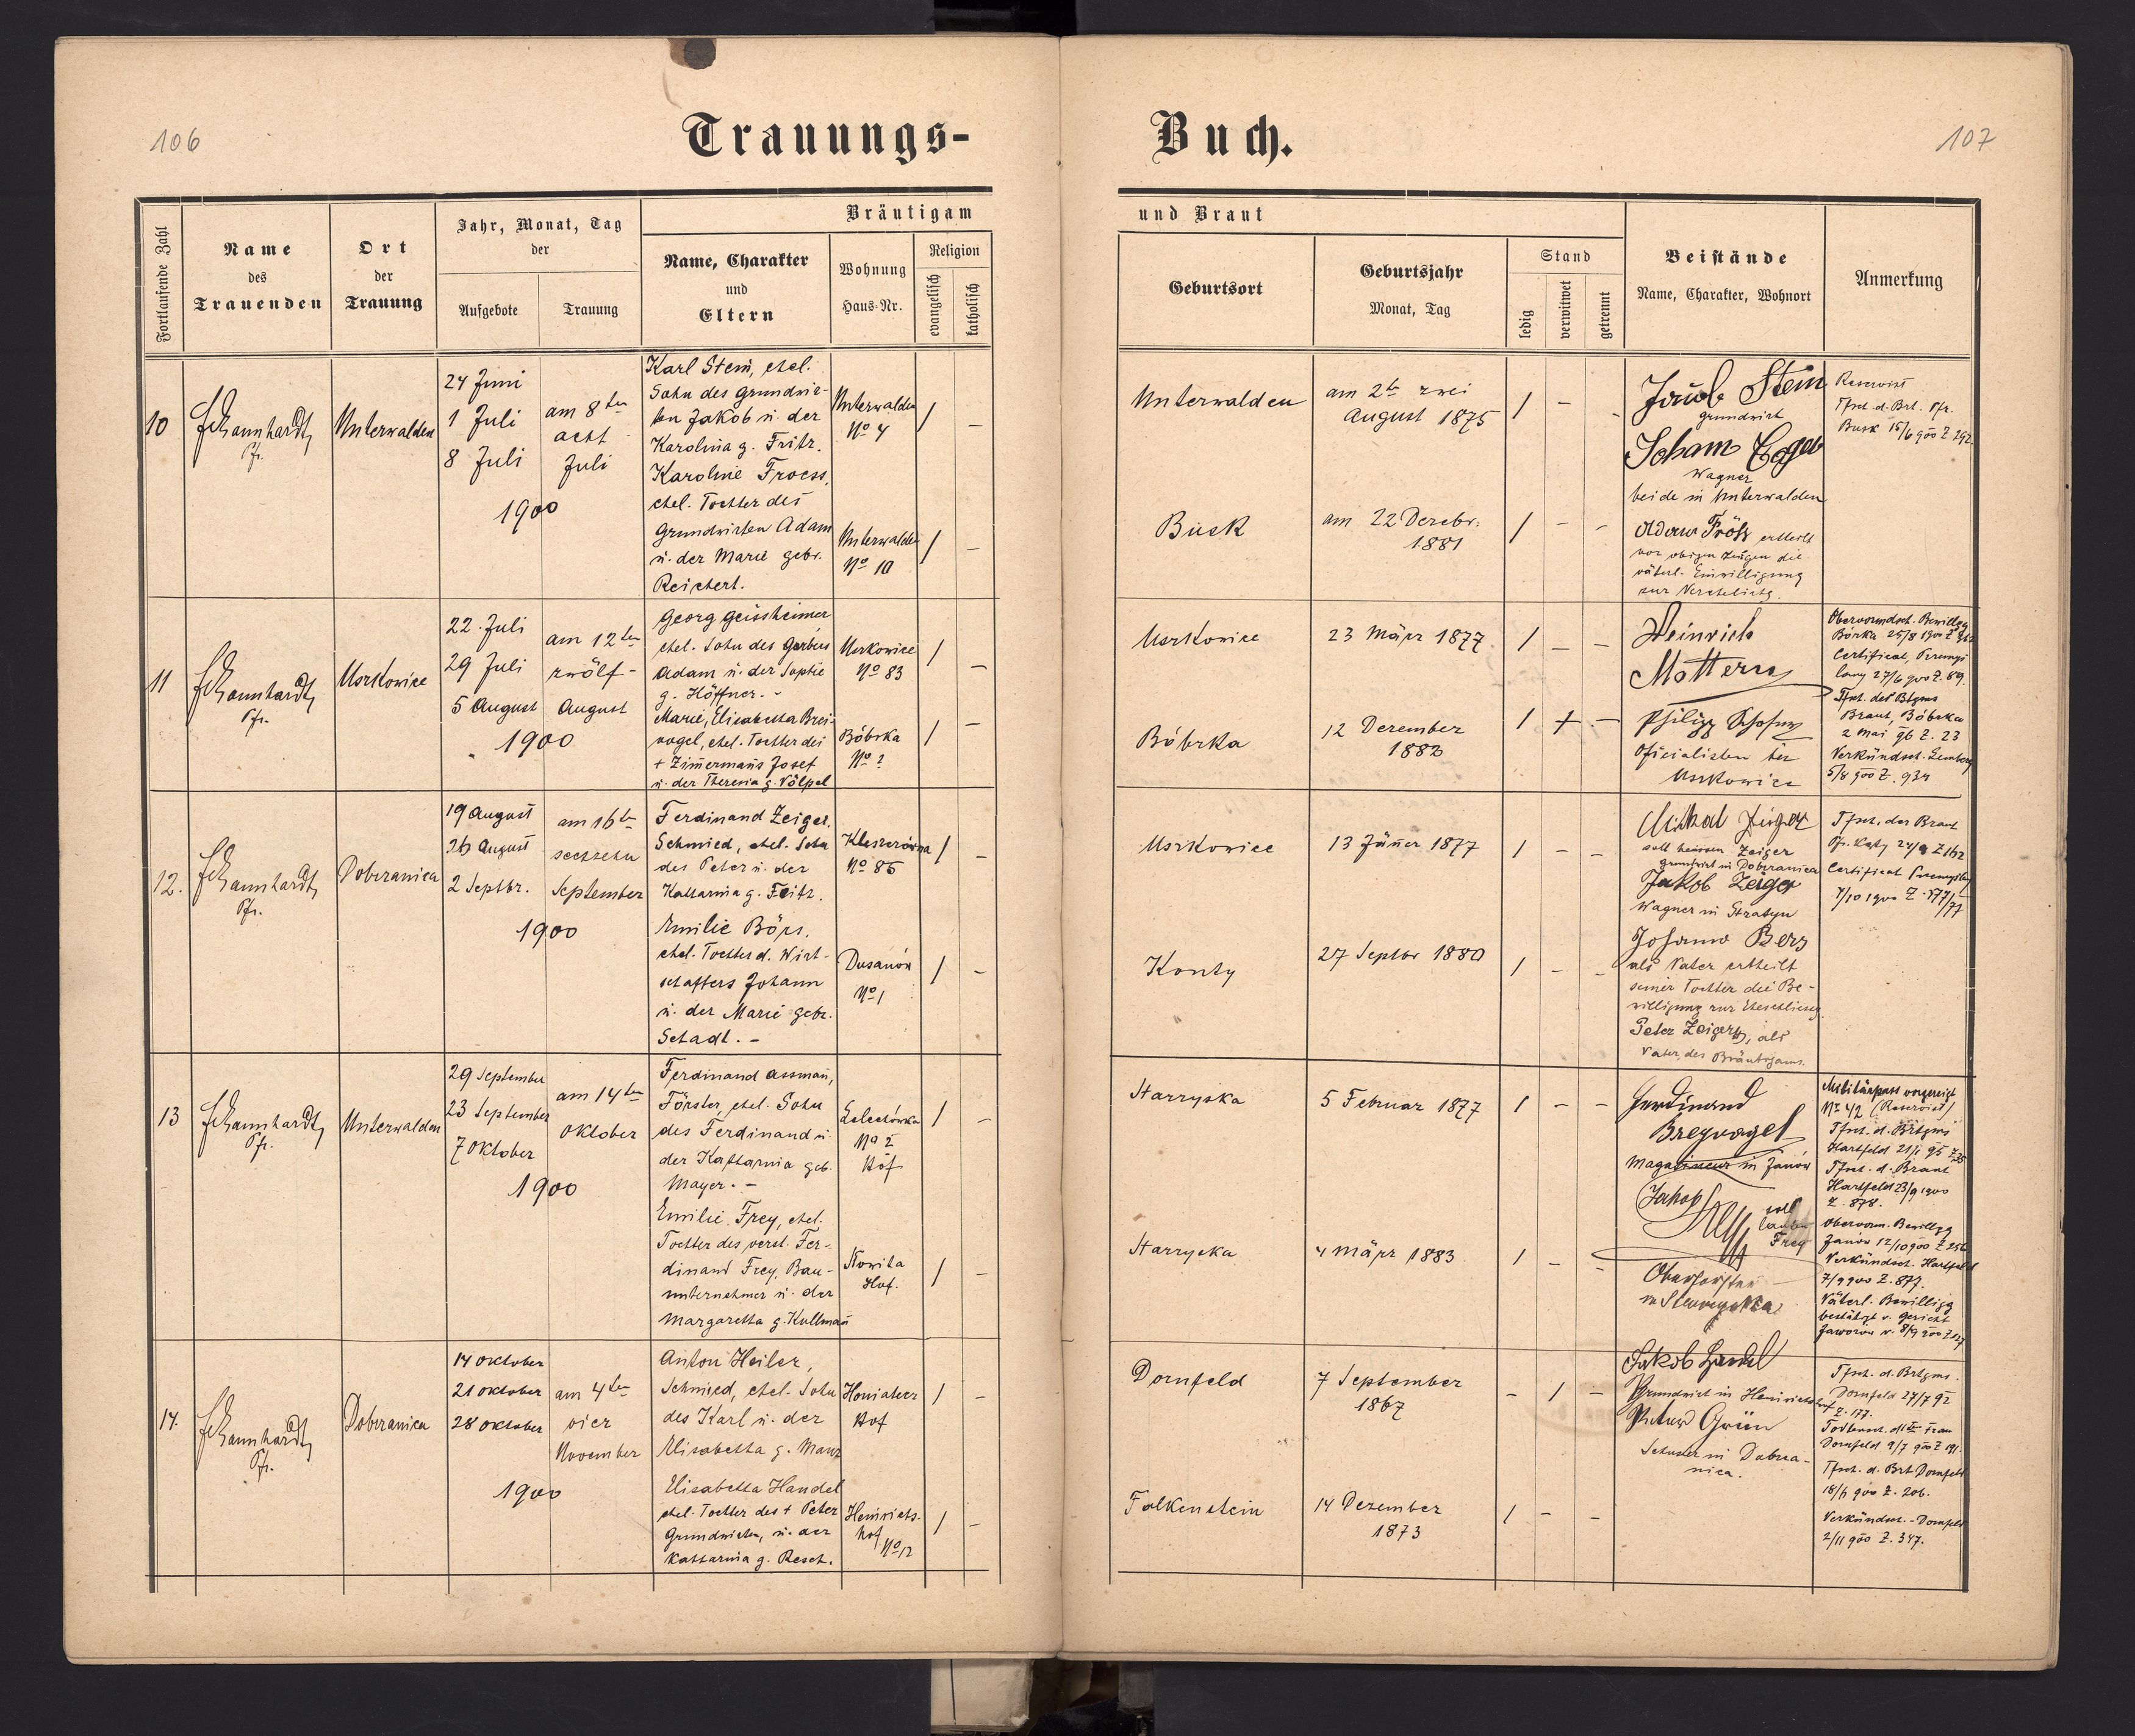 106
Trauungs-
Buch.
107
Fortlaufende Zahl
Name
des
Trauenden
Ort
der
Trauung
Jahr, Monat, Tag
der
Aufgebote
Trauung
Bräutigam
Name, Charakter
und
Eltern
Wohnung
Haus-Nr.
Religion
evangelisch
katholisch
und Braut
Geburtsort
Geburtsjahr
Monat, Tag
Stand
ledig
verwitwet
getrennt
Beistände
Name, Charakter, Wohnort
Anmerkung
10
Pfr.
Unterwalden
24 Juni
1 Juli
8 Juli
am 8ten
acht
Juli
1900
Karl Stein, ehel.
Sohn des Grundwir-
ten Jakob u. der
Karolina g. Fritz.
Karoline Froess,
ehel. Tochter des
Grundwirten Adam
u. der Marie gebr.
Reichert.
Unterwalden
No 4
/ –
Unterwalden
No 10
/ –
Unterwalden
am 2te zwei
August 1875
/ – -
Busk
am 22 Dezbr.
1881
/ – -
Jakob Stein
Grundwirt
Wagner
beide in Unterwalden
Adam Fröss ertheilt
vor obigen Zeugen die
väterl. Einwilligung
zur Verehelichg.
Reservist
Tfsch. d. Brt. Pfr.
Busk 15/6 900 Z 292
11
Pfr.
Uszkowice
22. Juli
29 Juli
5 August
am 12ten
zwölf-
August
1900
Georg Geissheimer
ehel. Sohn des Gerbers
Adam u. der Sophie
g. Höffner. -
Marie, Elisabetha Brei-
vogel, ehel. Tochter des
+ Zimermans Josef
u. der Theresia g. Völpel
Uszkowice
No 83
/ –
Bóbrka
No ?
/ –
Uszkowice
23 März 1877
/ – –
Bóbrka
12 Dezember
1882
/ + –
Heinrich
Mottern
Philipp
Uszkowice
Obervormdsch. Bewillgg
Bórka 25/8 1900
Certificat,
27/6 900 Z. 89.
Tfsch. des Btgms
Braut, Bóbrka
2 Mai 96 Z. 23
Verkündsch. Lemberg
5/8 900 Z. 934
12.
Pfr.
Dobrzanica
19 August
26 August
2 Septbr.
am 16ten
sechzehn
September
1900
Ferdinand Zeiger,
Schmied, ehel. Sohn
des Peter u. der
Katharina g. Feitz.
Emilie Börs,
ehel. Tochter d. Wirt-
schafters Johann
u. der Marie gebr.
Schadt. -
No 86
/ –
Dusanów
No 1
/ –
Uszkowice
13 Jäner 1877
/ – –
Konty
27 Septbr 1880
/ – –
soll heissen Zeiger
Grundwirt in Dobrzanica
Jakob Zeiger
Wagner in Stratyn
Johann Bers
als Vater ertheilt
seiner Tochter die Be-
willigung zur Eheschliessg.
Peter Zeiger, als
Vater des Bräutigams.
Tfsch. der Braut
Certificat Przemyślany
7/10 1900 Z. 577/77
13
Pfr.
Unterwalden
29 September
23 September
7 Oktober
am 14ten
Oktober
1900
Ferdinand Assman,
Förster, ehel. Sohn
des Ferdinand u.
der Katharina geb.
Mayer. -
Emilie Frey, ehel.
Tochter des verst. Fer-
dinand Frey, Bau-
unternehmer u. der
Margaretha g. Kullman
Zelechówka
No 2
Hof
/ –
Nowila
Hof.
/ –
Starzyska
5 Februar 1877
/ – –
Starzyska
4 März 1883
/ – -
Ferdinand
Breyvogel
Magazineur in Janów
Jakob
soll
lauten
Frey
Oberförster
in Starzyska
Militärpass vorgezeigt
No 42 (Reservist)
Tfsch. d. Brtgms
Hartfeld 21/1 95 Z 35
Tfsch. d. Braut
Hartfeld 23/9 1900
Z. 878.
Obervorm. Bewillgg
Janów 12/10 900 Z 256
Verkündsch. Hartfeld
7/9 900 Z. 877.
Väterl. Bewilligg
bestätigt v. Gericht
Jaworow v. 8/9 900 Z 127
14.
Pfr.
Dobrzanica
14 Oktober
21 Oktober
28 Oktober
am 4ten
vier
November
1900
Anton Heiler,
Schmied, ehel. Sohn
des Karl u. der
Elisabetha g. Manz
Elisabetha Handel
ehel. Tochter des + Peter
Grundwirten, u. der
Katharina g. Resch.
Honiatycz
Hof
/ –
Heinrichs-
hof
No 12
/ –
Dornfeld
7 September
1867
– / –
Falkenstein
14 Dezember
1873
/ – –
Jakob Handel
Grundwirt in Heinrichshof
Peter Grün
Schuster in Dobrza-
nica.
Tfsch. d. Brtgms.
Dornfeld 27/7 92
Z. 177.
Todtensch. d. 1ten Frau
Dornfeld 9/7 900 Z 191.
Tfsch. d. Brt Dornfeld
18/6 900 Z. 206.
Verkündsch. - Dornfeld
2/11 900 Z. 347.